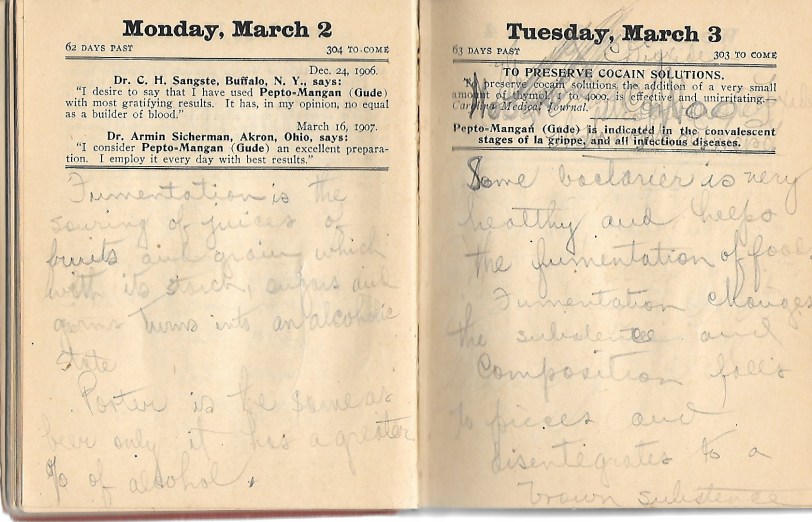 Monday, March 2
62 DAYS PAST 304 TO COME
Dec. 24, 1906.
Dr. C. H. Sangste, Buffalo, N. Y., says:
"I desire to say that I have used Pepto-Mangan (Gude)
with most gratifying results. It has, in my opinion, no equal
as a builder of blood."
March 16, 1907.
Dr. Armin Sicherman, Akron, Ohio, says:
"I consider Pepto-Mangan (Gude) an excellent prepara-
tion. I employ it every day with best results."
Fumentation is the
souring of juices of
fruits and grain which
with its starch, sugars and
germs turns into an alcoholic
state
Porter is the same as
beer only it has a greater
% of alcohol.
Tuesday, March 3
63 DAYS PAST 303 TO COME
TO PRESERVE COCAIN SOLUTIONS.
To preserve cocain solutions, the addition of a very small
amount of thymol, 1 to 4000, is effective and unirritating.—
Carolina Medical Journal.
Pepto-Mangan (Gude) is indicated in the convalescent
stages of la grippe, and all infectious diseases.
Some bactarier is very
healthy and helps
the fumentation of food.
Fumentation changes
the subsdence and
Composition falls
to pieces and
disentegrates to a
brown substence